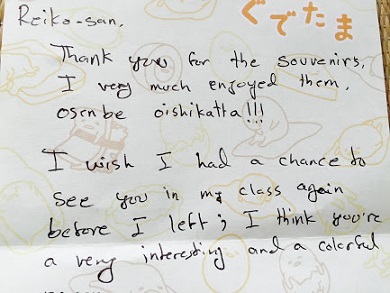 ぐでたま
Reiko-san,
Thank you for the souvenirs,
I very much enjoyed them.
osenbe oishikatta!!!
I wish I had a chance to
see you in my class again
before I left; I think you're
a very interesting and a colorful